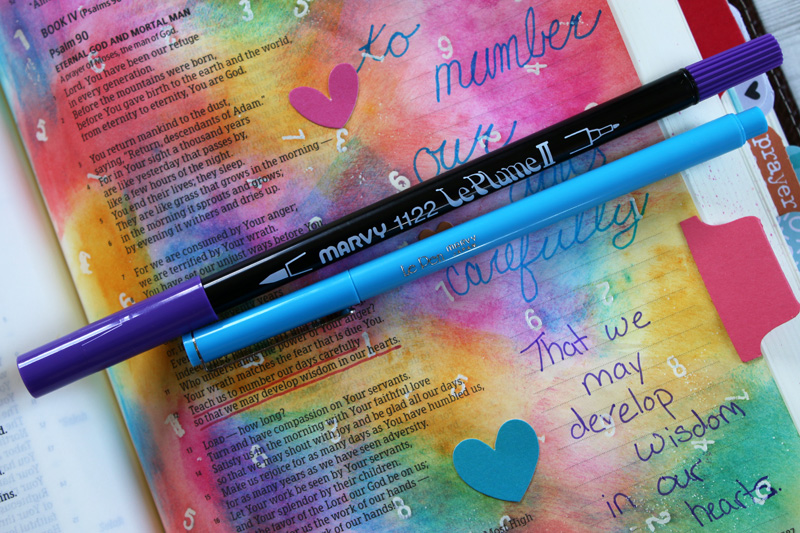 BOOK IV (Psalms 90
Psalm 90
ETERNAL GOD AND MORTAL MAN
A prayer of Moses, the man of God.
Lord, You have been our refuge
in every generation.
Before the mountains were born,
before You gave birth to the earth and the world,
from eternity to eternity, You are God.
You return mankind to the dust,
saying, "Return, descendants of Adam."
For in Your sight a thousand years
are like yesterday that passes by,
like a few hours of the night.
You end their lives; they sleep.
They are like grass that grows in the morning —
in the morning it sprouts and grows;
by evening it withers and dries up.
For we are consumed by Your anger,
we are terrified by Your wrath.
You have set our unjust ways before You
Your wrath matches the fear that is due You.
Teach us to number our days carefully
so that we may develop wisdom in our hearts.
LORD — how long?
Turn and have compassion on Your servants.
Satisfy us in the morning with Your faithful love
so that we may shout with joy and be glad all our days.
Make us rejoice for as many days as You have humbled us,
for as many years as we have seen adversity.
Let Your work be seen by Your servants,
and Your splendor by their children.
Let the favor of the Lord our God be on us;
work of our hands —
work of our hands!
Most High
to
number
our
carefully
MARVY 1122 LePlume II
Le Pen marvy
That we
may
develop
wisdom
in our
hearts.
prayer